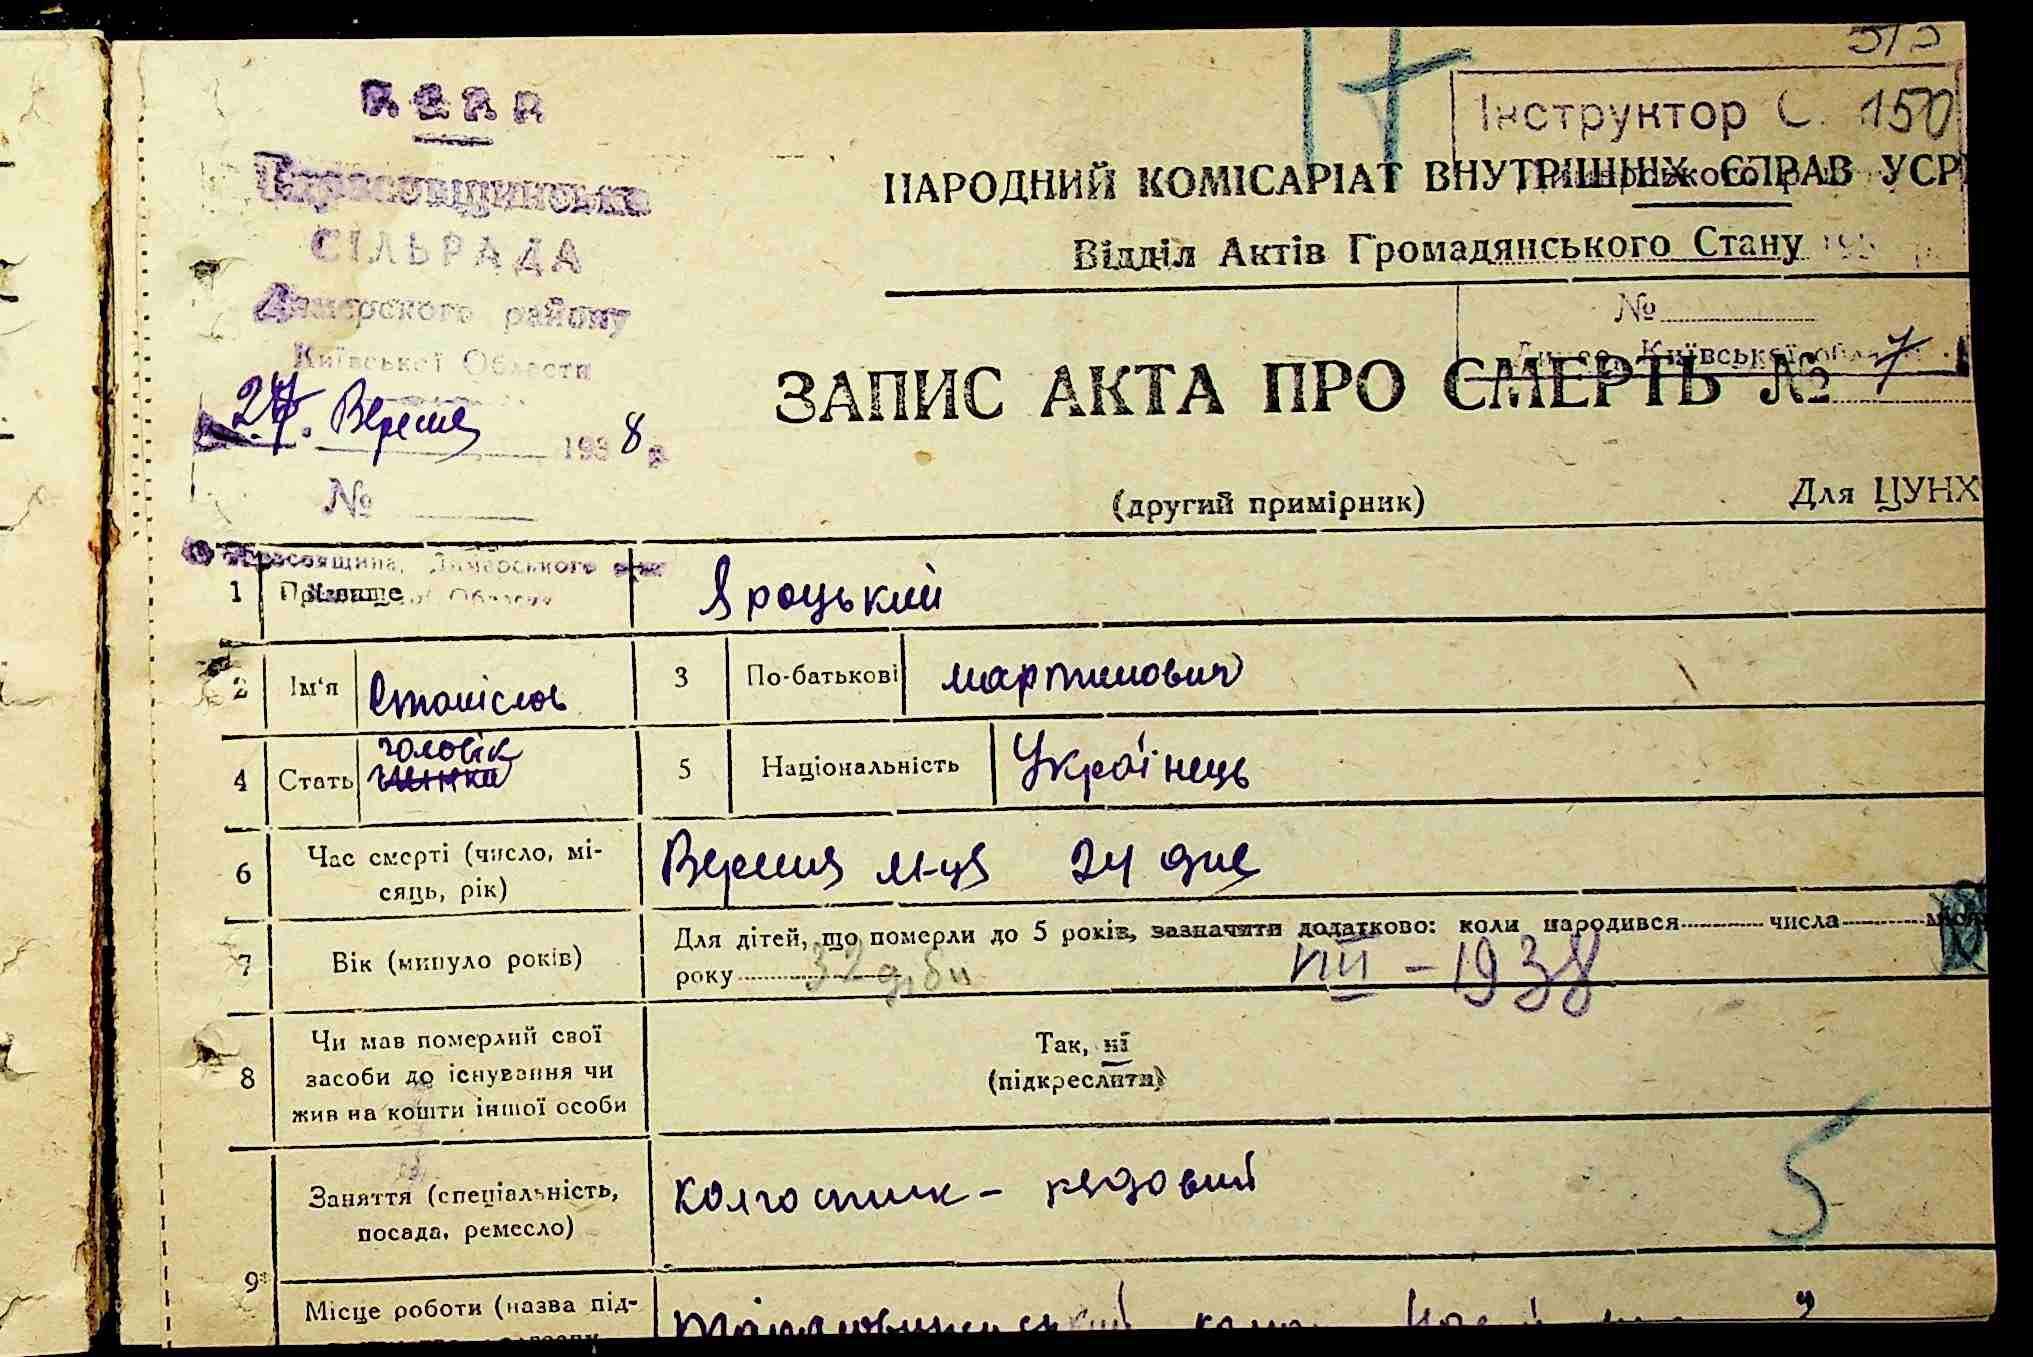 У С Р Р
Тарасовщинська
СІЛЬРАДА
Димерского району
Київської Области
27. Вересня 1938 р.
№
Інструктор С. 150
НАРОДНИЙ КОМІСАРІАТ ВНУТРІШНІХ СПРАВ УСРР
Відділ Актів Громадянського Стану
№
Київської обл
ЗАПИС АКТА ПРО СМЕРТЬ № 7
(другий примірник)
Для ЦУНХ
Тарасовщина, Димерського
1 Прізвище Яроцький
2 Ім'я Станіслов 3 По-батькові мартинович
4 Стать чоловік жінка 5 Національність Українець
6 Час смерті (число, мі-
сяць, рік) Вересня м-ця 24 дня
7 Вік (минуло років) Для дітей, що померли до 5 років, зазначити додатково: коли народився числа
року VIII – 1938
8 Чи мав померлий свої
засоби до існування чи
жив на кошти іншої особи
Так, ні
(підкреслити)
9 Заняття (спеціальність,
посада, ремесло) колгоспник – рядовий
5
Місце роботи (назва під-